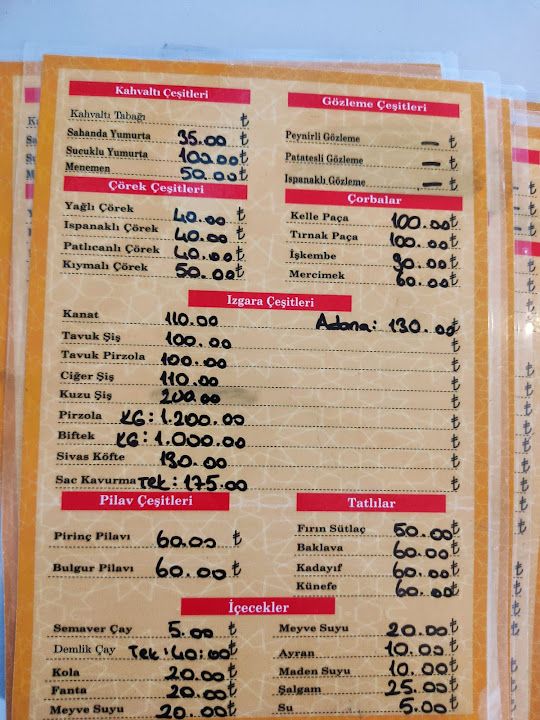 Kahvaltı Çeşitleri
Kahvaltı Tabağı ₺
Sahanda Yumurta 35.00 ₺
Sucuklu Yumurta 100.00 ₺
Menemen 50.00 ₺
Gözleme Çeşitleri
Peynirli Gözleme — ₺
Patatesli Gözleme — ₺
Ispanaklı Gözleme — ₺
Çörek Çeşitleri
Yağlı Çörek 40.00 ₺
Ispanaklı Çörek 40.00 ₺
Patlıcanlı Çörek 40.00 ₺
Kıymalı Çörek 50.00 ₺
Çorbalar
Kelle Paça 100.00 ₺
Tırnak Paça 100.00 ₺
İşkembe 90.00 ₺
Mercimek 60.00 ₺
Izgara Çeşitleri
Kanat 110.00 Adana: 130.00 ₺
Tavuk Şiş 100.00 ₺
Tavuk Pirzola 100.00 ₺
Ciğer Şiş 110.00 ₺
Kuzu Şiş 200.00 ₺
Pirzola KG: 1.200.00 ₺
Biftek KG: 1.000.00 ₺
Sivas Köfte 130.00 ₺
Sac Kavurma Tek: 175.00 ₺
Pilav Çeşitleri
Pirinç Pilavı 60.00 ₺
Bulgur Pilavı 60.00 ₺
Tatlılar
Fırın Sütlaç 50.00 ₺
Baklava 60.00 ₺
Kadayıf 60.00 ₺
Künefe 60.00 ₺
İçecekler
Semaver Çay 5.00 ₺
Demlik Çay Tek: 40:00 ₺
Kola 20.00 ₺
Fanta 20.00 ₺
Meyve Suyu 20.00 ₺
Meyve Suyu 20.00 ₺
Ayran 10.00 ₺
Maden Suyu 10.00 ₺
Şalgam 25.00 ₺
Su 5.00 ₺